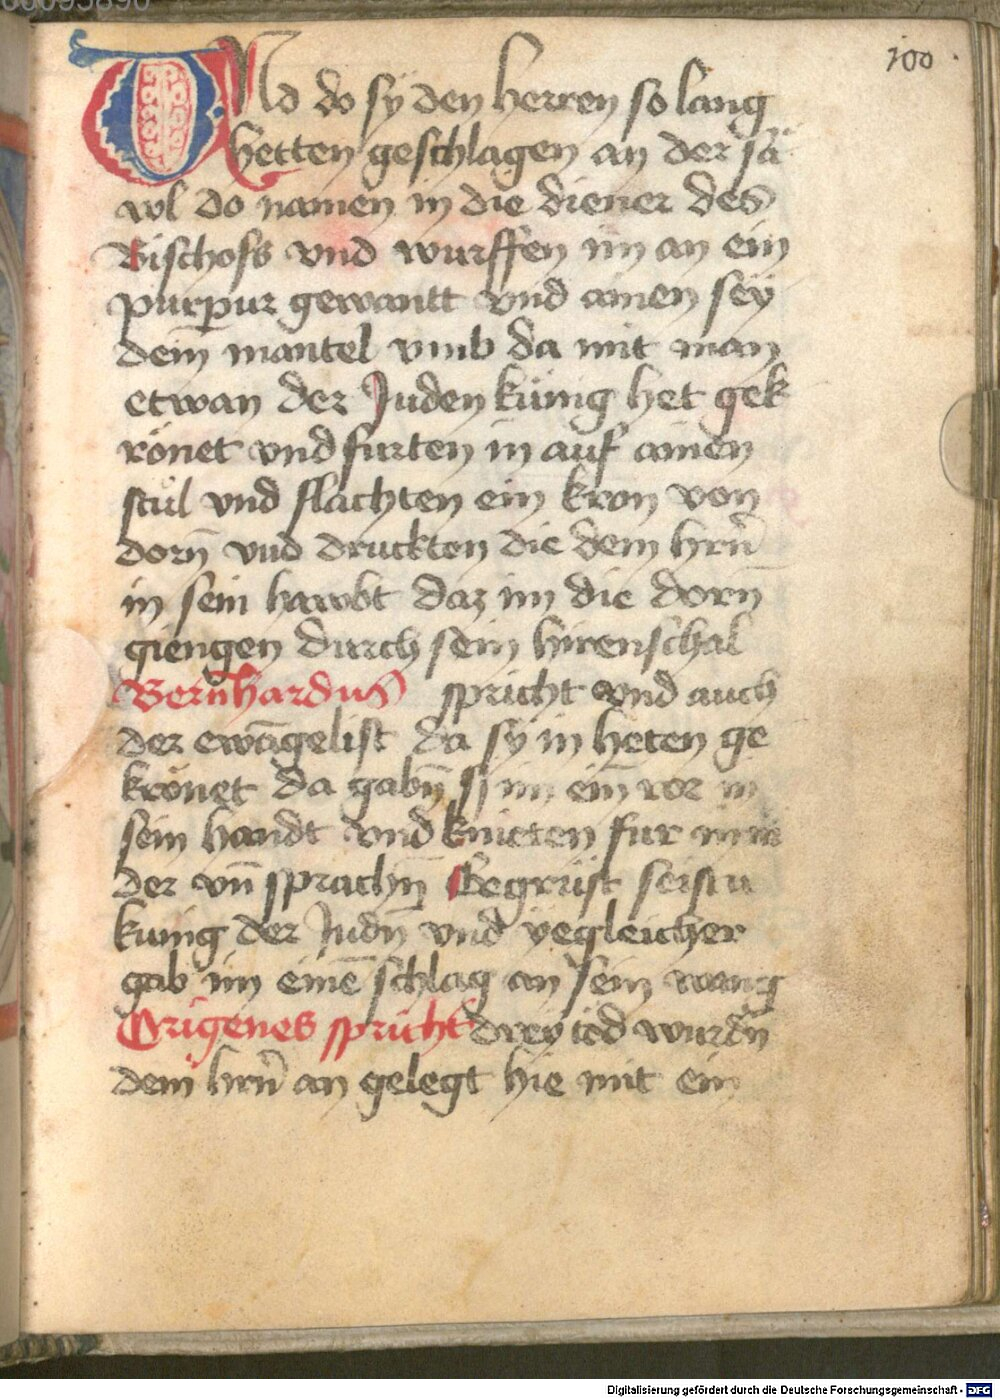 100
VNd do sy den herren so lang
hetten geschlagen an der sä
wl do namen in die diener des
Bischofs vnd wurffen im an ein
purpur gewantt vnd ainen sey
dein mantel vmb da mit man
etwan der Juden künig het gek
rönet vnd furten in auf ainen
stůl vnd flachten ein kron von
dorn̄ vnd druckten die dem hrn̄
in sein hawbt daz im die dorn̄
giengen durch sein hirenschal
Bern̄hardus spricht vnd auch
der ewāgelist da sy in heten ge
krönet da gabn̄ sy im ein ror in
sein handt vnd knieten fur in ni
der vn̄ sprachn̄ Begrüst seistu
kunig der Judn̄ vnd yegleicher
gab im einē schlag an sein wang
Origenes spricht drey tod wurdn̄
dem hrn̄ an gelegt hie mit ein
Digitalisierung gefördert durch die Deutsche Forschungsgemeinschaft - DFG